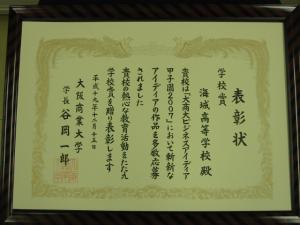 表彰状
学校賞
海城高等学校殿
貴校は「大商大ビジネスアイディア
甲子園2007」において斬新な
アイディアの作品を多数応募
されました
貴校の熱心な教育活動をたたえ
学校賞を贈り表彰します
平成十九年十二月十五日
大阪商業大学
学長 谷岡一郎